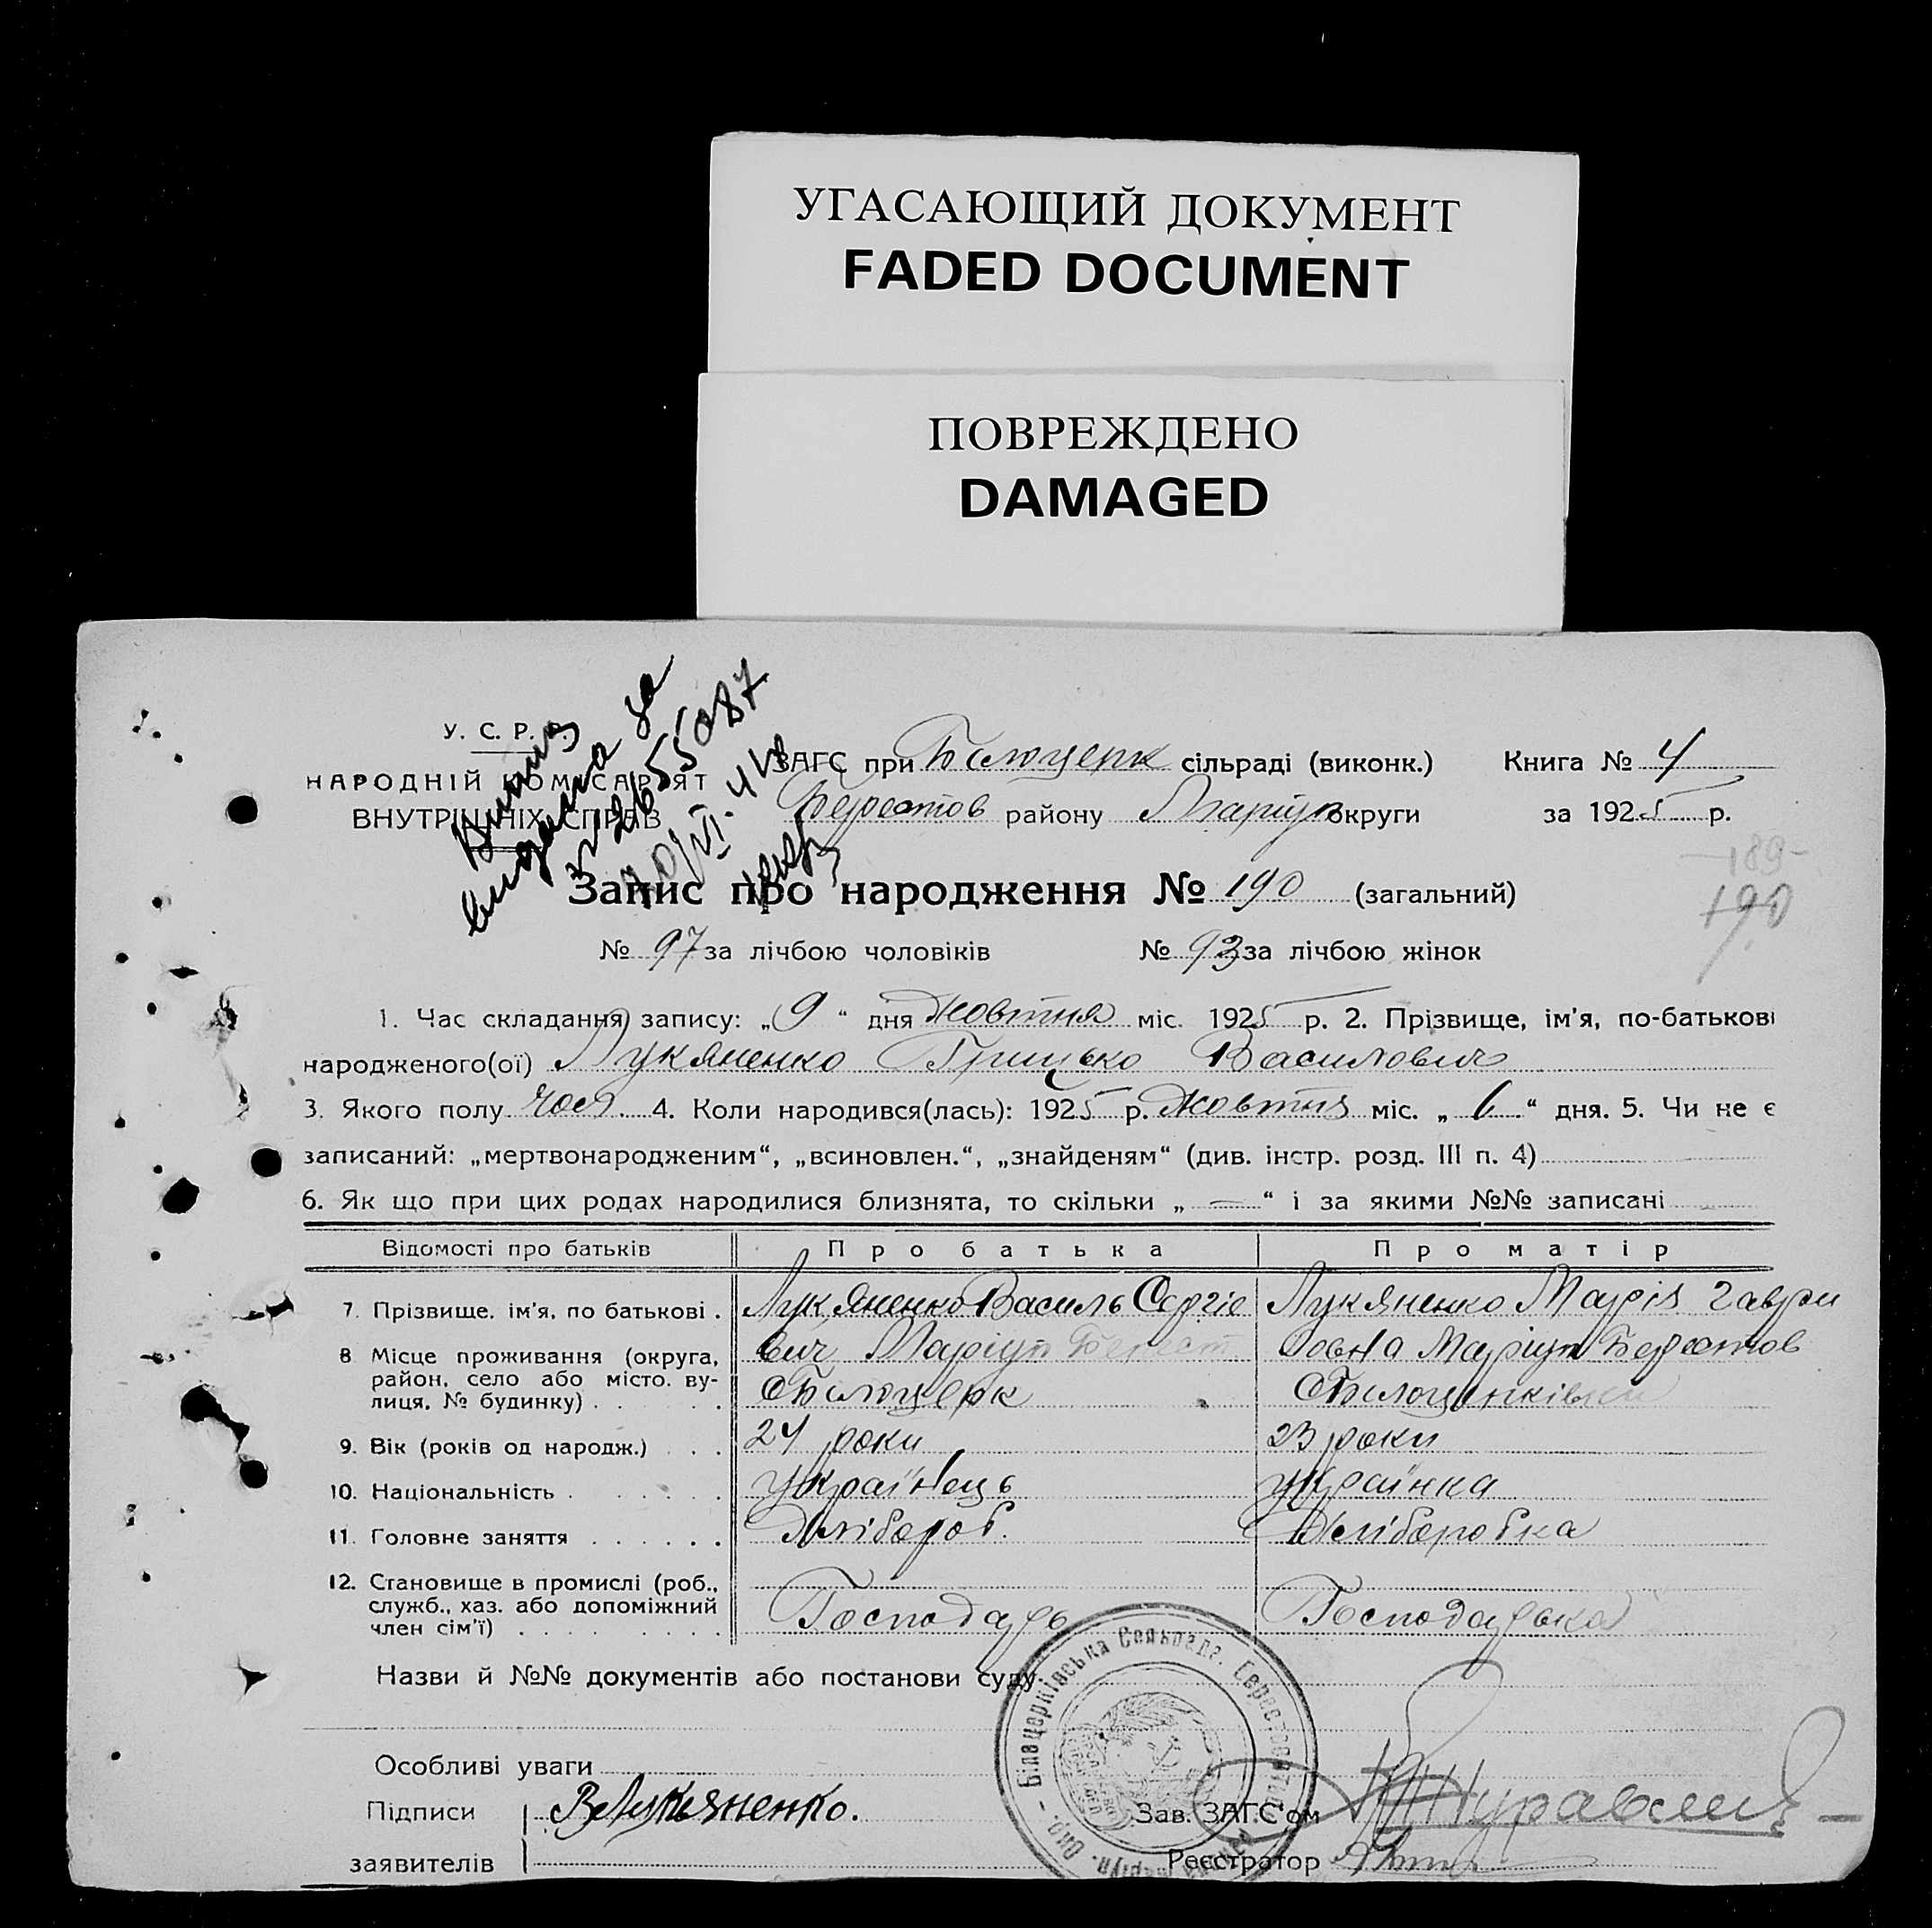 УГАСАЮЩИЙ ДОКУМЕНТ
FADED DOCUMENT
ПОВРЕЖДЕНО
DAMAGED
Випис
видано за
№ 2655087
У. С. Р. Р.
НАРОДНІЙ КОМІСАРІЯТ
ВНУТРІШНІХ СПРАВ
ЗАГС при Білоцерк сільраді (виконк.) Книга № 4
Берестов району Маріуп округи за 1925 р.
189
190
Запис про народження № 190 (загальний)
№ 97 за лічбою чоловіків № 93 за лічбою жінок
1. Час складання запису: „9“ дня Жовтня міс. 1925 р. 2. Прізвище, ім'я, по-батькові
народженого(ої) Лукяненко Грицько Василович
3. Якого полу чол. 4. Коли народився(лась): 1925 р. Жовтня міс. „6“ дня. 5. Чи не є
записаний: „мертвонародженим“, „всиновлен.“, „знайденям“ (див. інстр. розд. III п. 4)
6. Як що при цих родах народилися близнята, то скільки „—“ і за якими №№ записані
Відомості про батьків Про батька Про матір
7. Прізвище, ім'я, по батькові . Лукяненко Василь Сергіе Лукяненко Марія Гаври
8 Місце проживання (округа, вич Маріуп Берест ловна Маріуп Берестов
район, село або місто, ву-
лиця, № будинку) . . . Білоцерк
9. Вік (років од народж.) . . . 24 роки 23 роки
10. Національність . . . . . . Українець Українка
11. Головне заняття . . . . . . Хлібороб. Хліборобка
12. Становище в промислі (роб.,
служб., хаз. або допоміжний Господарь Господарька
член сім'ї) . . . . . . . . .
Назви й №№ документів або постанови суду
Особливі уваги
Підписи В Лукьяненко. Зав. ЗАГС'ом Журавлиц
заявителів Реєстратор
Білацерківська Сельрада,